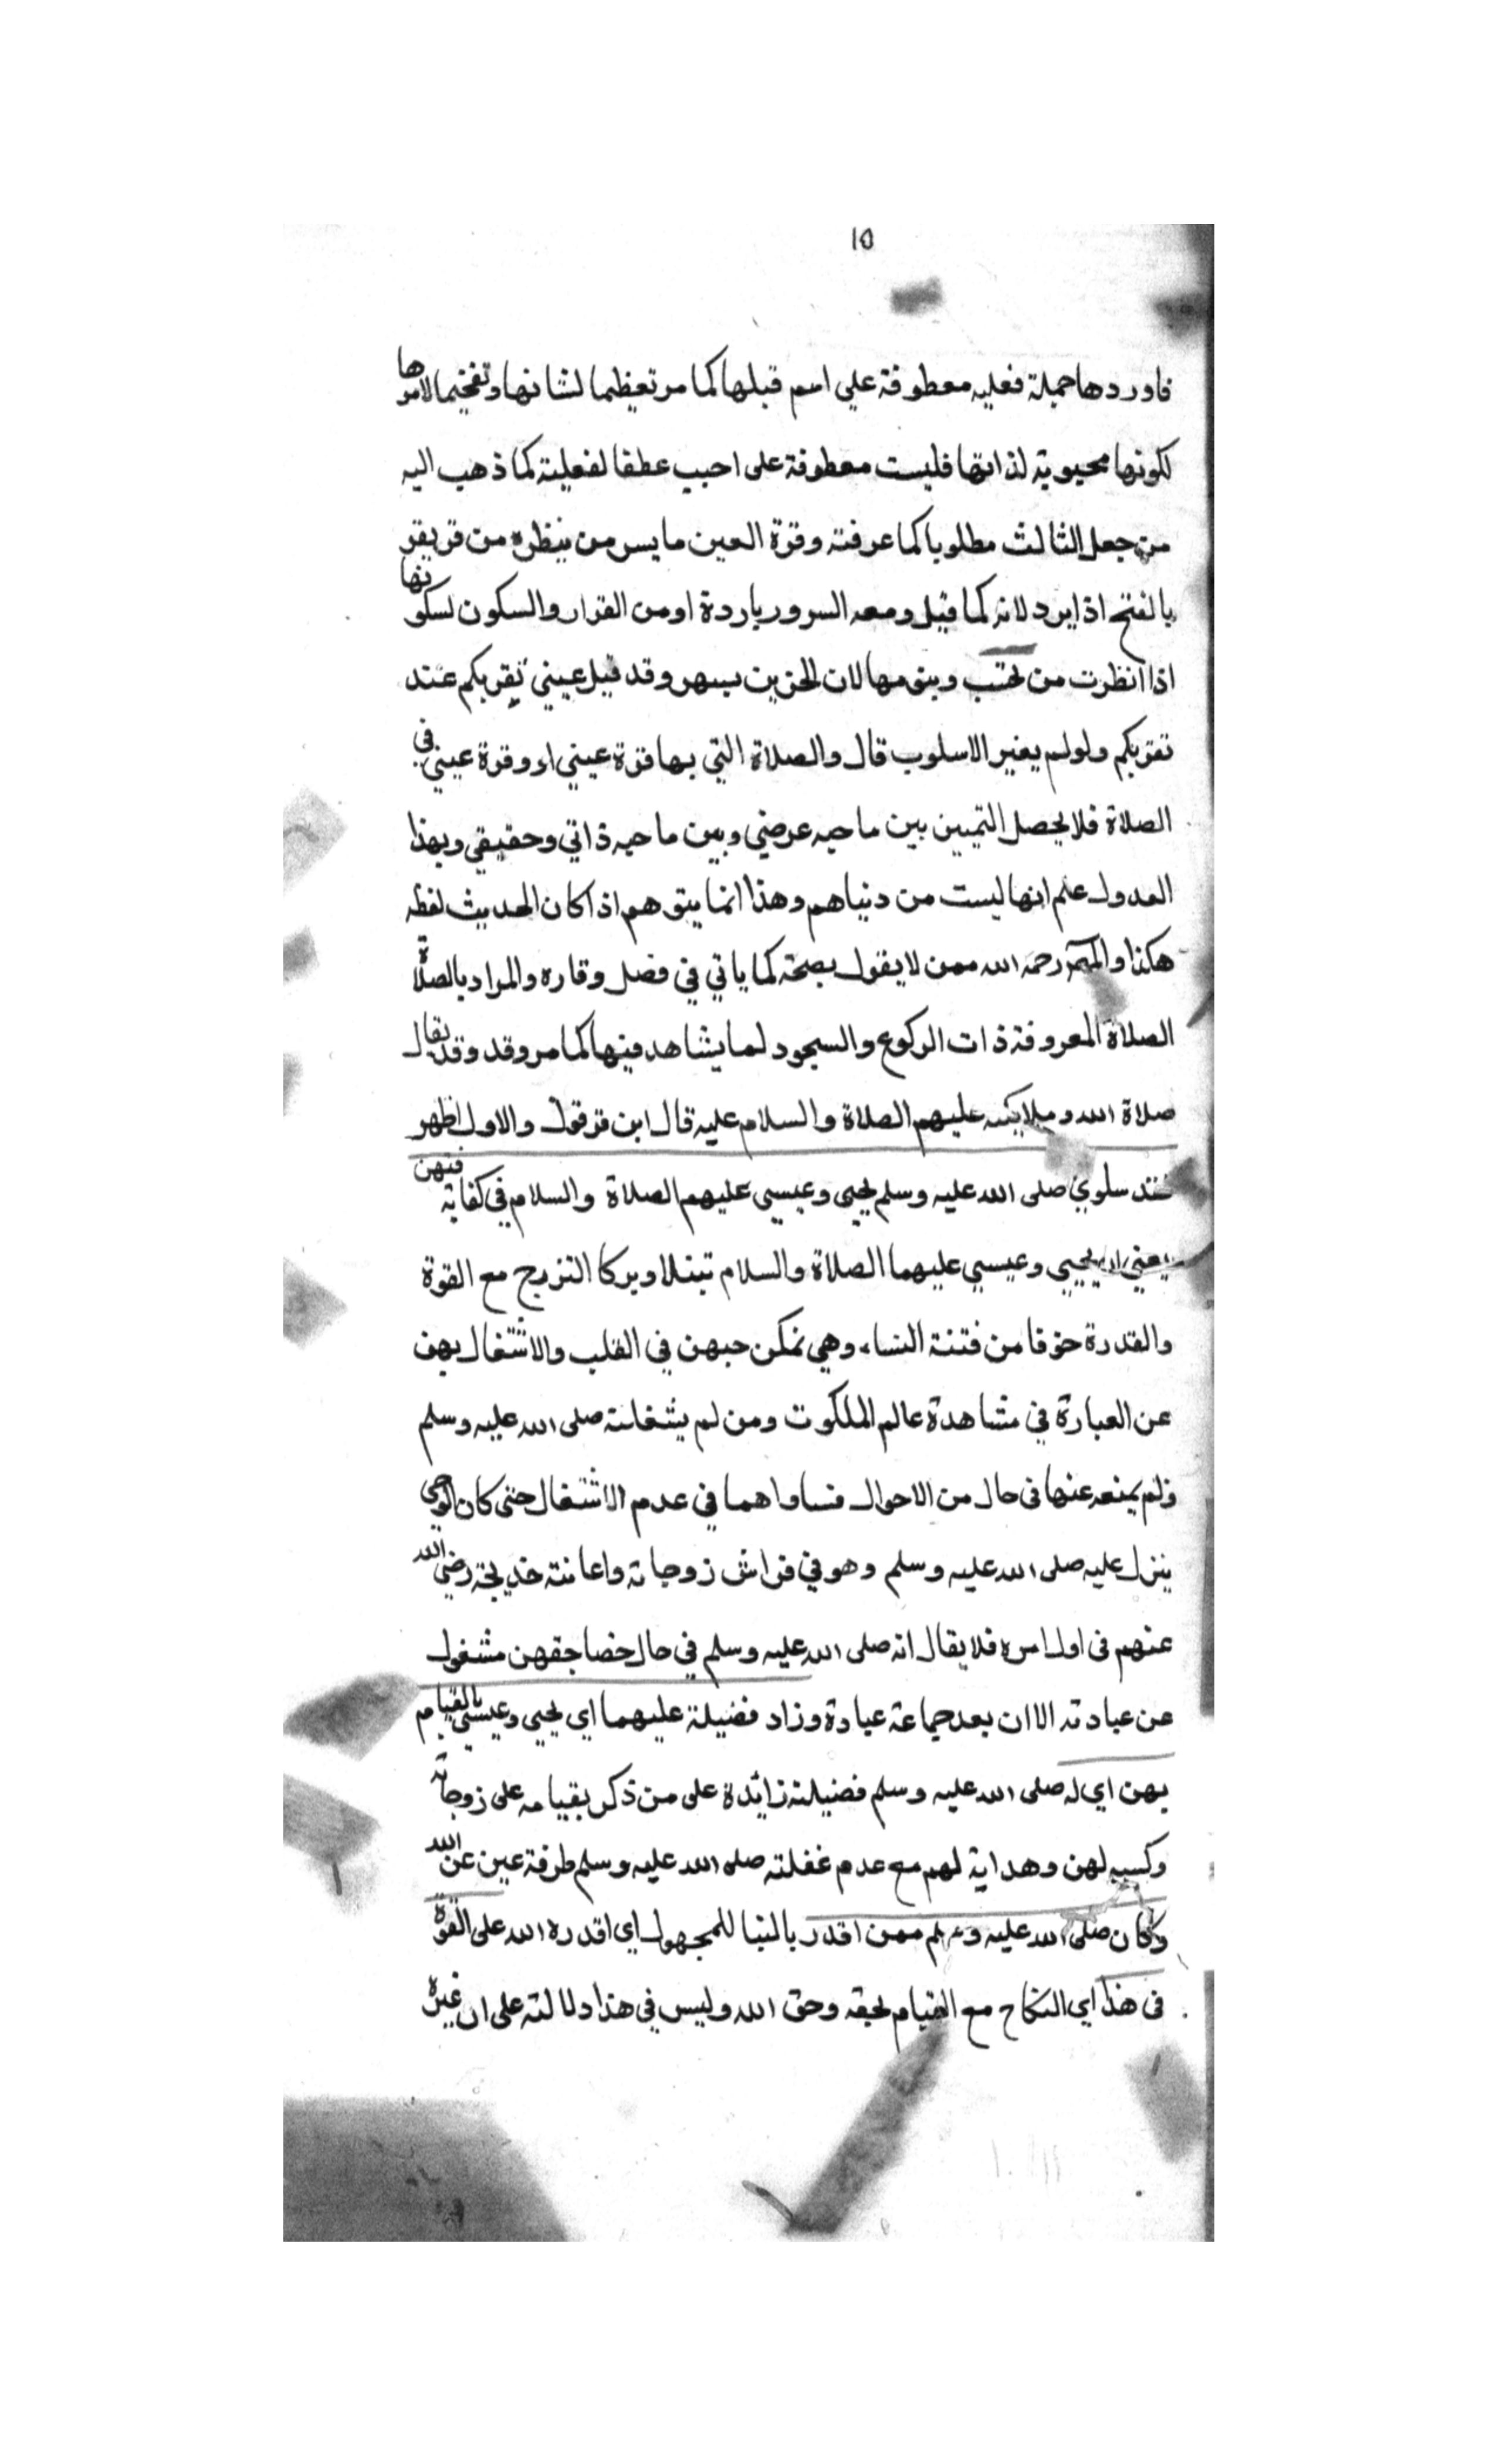 ١٥
فاوردها جملة فعليه معطوفة علي اسم قبلها كما مر تعظيما لشانها وتفخيما لامرها
لكونها محبوبة لذاتها فليست معطوفة على احبب عطفا لفعلية كما ذهب اليه
من جعل الثالث مطلوبا كما عرفته وقرة العين ما يسر من ينظره من قر يقر
بالفتح اذا برد لانه كما قيل ومعه السرور باردة او من القرار والسكون لسكونها
اذا انظرت من تحب وينومها لان الحزين يسهر وقد قيل عيني تقر بكم عند
تقربكم ولو لم يغير الاسلوب قال والصلاة التي بها قرة عيني او وقرة عيني في
الصلاة فلا يحصل التميين بين ما حبه عرضي وبين ما حبه ذاتي وحقيقي وبهذا
العدول علم انها ليست من دنياهم وهذا انما يتوهم اذا كان الحديث لفظه
هكذا والمص رحمه الله ممن لا يقول بصحته كما ياتي في فضل وقاره والمراد بالصلاة
الصلاة المعروفة ذات الركوع والسجود لما يشاهد فيها كما مر وقد وقد يقال
صلاة الله وملايكته عليهم الصلاة والسلام عليه قال ابن قرقول والاول اظهر
فقد سلوي صلى الله عليه وسلم يحيى وعيسى عليهم الصلاة والسلام في كفاية فتنهن
يعني ان يحيى وعيسي عليهما الصلاة والسلام تبتلا وتركا التزوج مع القوة
والقدرة خوفا من فتنة النساء وهي تمكن حبهن في القلب والاشتغال بهن
عن العبارة في مشاهدة عالم الملكوت ومن لم يشغلنه صلى الله عليه وسلم
ولم يمنعه عنها في حال من الاحوال فساواهما في عدم الاشتغال حتى كان الوحي
ينزل عليه صلى الله عليه وسلم وهو في فراش زوجاته واعانته خديجة رضي الله
عنهم في اول امره فلا يقال انه صلى الله عليه وسلم في حال مضاجعتهن مشغول
عن عبادته الا ان يعد جماعه عبادة وزاد فضيلة عليهما اي يحيى وعيسى بالقيام
بهن اي له صلى الله عليه وسلم فضيلة زائدة على من ذكر بقيامه على زوجاته
وكسبه لهن وهداية لهم مع عدم غفلته صلى الله عليه وسلم طرفة عين عن الله
وكان صلى الله عليه وسلم ممن اقدر بالبنا للمجهول اي اقدره الله على القوة
في هذا اي النكاح مع القيام بحقه وحق الله وليس في هذا دلالة على ان غيره